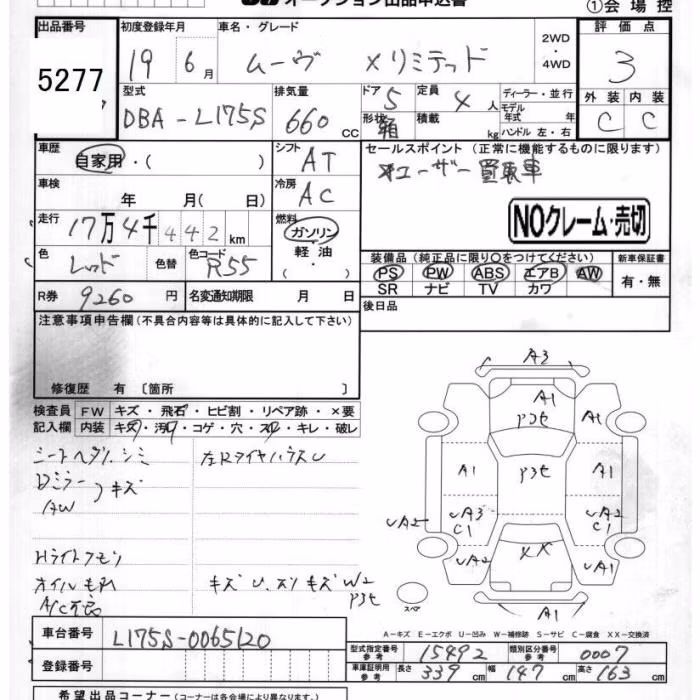 オークション出品申込書
①会場控
出品番号 初度登録年月 車名・グレード 2WD・4WD 評価点
5277 19 6月 ムーヴ Xリミテッド 3
型式 排気量 ドア 5 定員 4人 ディーラー・並行 外装 内装
DBA-L175S 660cc 形状 箱 積載 kg モデル年式 年 ハンドル 左・右 C C
車歴 自家用・( ) シフト AT セールスポイント (正常に機能するものに限ります)
ユーザー買取車
車検 年 月( 日) 冷房 AC
NOクレーム・売切
走行 17万4千442km 燃料 ガソリン・軽油・( )
色 レッド 色替 色コード R55
装備品 (純正品に限り○をつけてください) 新車保証書
PS PW ABS エアB AW 有・無
SR ナビ TV カワ
R券 9260円 名変通知期限 月 日 後日品
注意事項申告欄 (不具合内容等は具体的に記入して下さい)
修復歴 有 〔箇所 〕
検査員 FW キズ・飛石・ヒビ割・リペア跡・×要
記入欄 内装 キズ・汚れ・コゲ・穴・スレ・キレ・破レ
シートヘタリ、シミ 左RタイヤハウスU
Dミラー キズ
AW
Hライトクモリ
オイルもれ キズ U、スリキズ W2
A/C不良 P3セ
A3
A1
P3セ A1 A1
A1 P3セ A1
UA2 UA3 C1 UA2 C1
UA2 XX UA1
A1
スペア
A-キズ E-エクボ U-凹み W-補修跡 S-サビ C-腐食 XX-交換済
車台番号 L175S-0065120
型式指定番号 参考 15492 類別区分番号 参考 0007
登録番号
車庫証明用 参考 長さ 339cm 幅 147cm 高さ 163cm
希望出品コーナー (コーナーは各会場により異なります。)